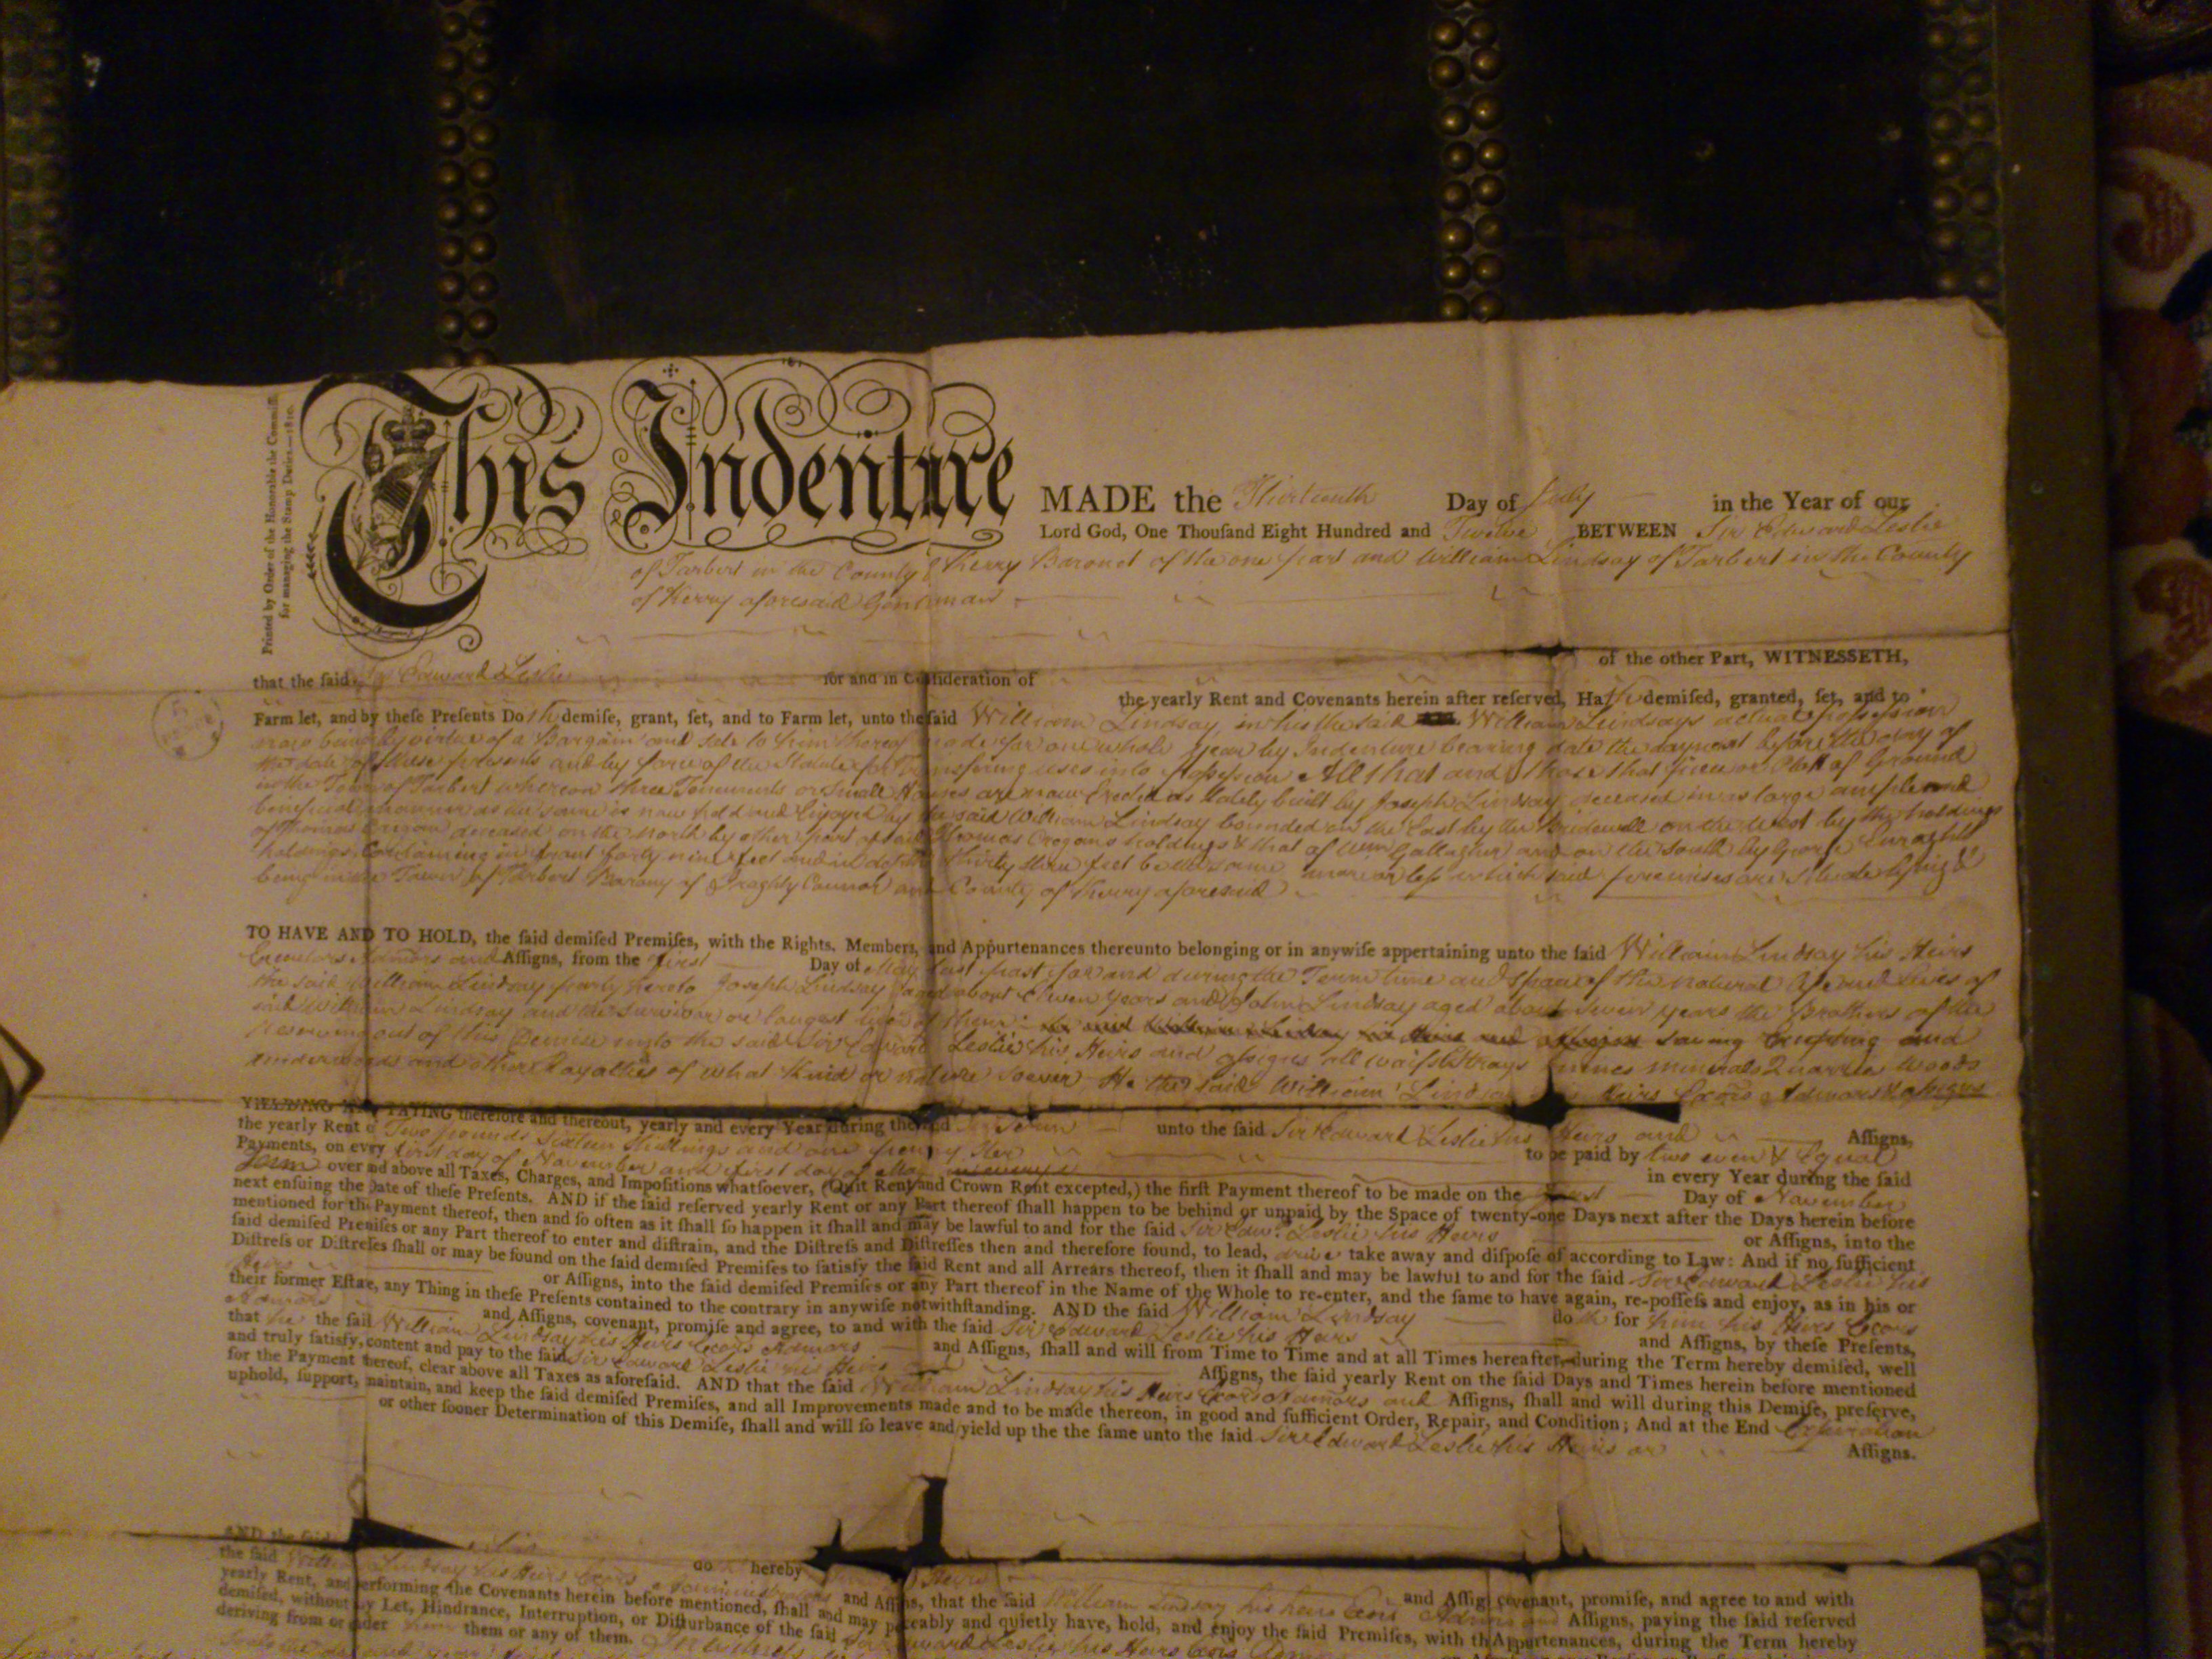 Printed by Order of the Honorable the Commiss.
for managing the Stamp Duties.—1810.
This Indenture MADE the Thirteenth Day of July in the Year of our
Lord God, One Thouſand Eight Hundred and Twelve BETWEEN Sir Edward Leslie
of Tarbert in the County of Kerry Baronet of the one part and William Lindsay of Tarbert in the County
of Kerry aforesaid Gentleman
of the other Part, WITNESSETH,
that the ſaid Sir Edward Leslie for and in Conſideration of
the yearly Rent and Covenants herein after reſerved, Hath demiſed, granted, ſet, and to
Farm let, and by theſe Preſents Doth demiſe, grant, ſet, and to Farm let, unto the ſaid William Lindsay, in his the said William Lindsays actual possession
now being by virtue of a Bargain and sale to him thereof made for one whole year by Indenture bearing date the day next before the day of
the date of these presents and by force of the Statute for transfering uses into possession All that and those that piece or Plott of Ground
in the Town of Tarbert whereon three Tenements or Small Houses are now Erected as lately built by Joseph Lindsay deceased in as large ample and
beneficial manner as the same is now held and Enjoyed by the said William Lindsay bounded on the East by the Bridewell on the West by the holdings
of Thomas Crogan deceased on the North by other part of said Thomas Crogans holdings & that of Wm Gallagher and on the South by George
holdings Containing in front forty nine feet and in depth thirty three feet be the same more or less which said premises are Situate lying &
being in the Town of Tarbert Barony of Iraghty Connor and County of Kerry aforesaid
TO HAVE AND TO HOLD, the ſaid demiſed Premiſes, with the Rights, Members, and Appurtenances thereunto belonging or in anywiſe appertaining unto the ſaid William Lindsay his Heirs
Executors Admors and Aſſigns, from the first Day of May last past for and during the Term time and Space of the natural life and lives of
the said William Lindsay party hereto Joseph Lindsay aged about Eleven years and John Lindsay aged about seven years the Brothers of the
said William Lindsay and the survivor or longest liver of them Saving Excepting and
Reserving out of this Demise unto the said Sir Edward Leslie his Heirs and assigns all waifs Strays mines minerals Quarries Woods
underwoods and other Royalties of what kind or nature soever He the said William Lindsay his Heirs Exors Admors & assigns
YIELDING AND PAYING therefore and thereout, yearly and every Year during the said Term unto the ſaid Sir Edward Leslie his Heirs and Aſſigns,
the yearly Rent of Two pounds Sixteen Shillings and one penny to be paid by two even & Equal
Payments, on every first day of November and first day of May in every Year during the ſaid
Term over and above all Taxes, Charges, and Impoſitions whatſoever, (Quit Rent and Crown Rent excepted,) the firſt Payment thereof to be made on the first Day of November
next enſuing the Date of theſe Preſents. AND if the ſaid reſerved yearly Rent or any Part thereof ſhall happen to be behind or unpaid by the Space of twenty-one Days next after the Days herein before
mentioned for the Payment thereof, then and ſo often as it ſhall ſo happen it ſhall and may be lawful to and for the ſaid Sir Edwd. Leslie his Heirs or Aſſigns, into the
ſaid demiſed Premiſes or any Part thereof to enter and diſtrain, and the Diſtreſs and Diſtreſſes then and therefore found, to lead, drive take away and diſpoſe of according to Law: And if no ſufficient
Diſtreſs or Diſtreſſes ſhall or may be found on the ſaid demiſed Premiſes to ſatisfy the ſaid Rent and all Arrears thereof, then it ſhall and may be lawful to and for the ſaid Sir Edward Leslie his
Heirs or Aſſigns, into the ſaid demiſed Premiſes or any Part thereof in the Name of the Whole to re-enter, and the ſame to have again, re-poſſeſs and enjoy, as in his or
their former Eſtate, any Thing in theſe Preſents contained to the contrary in anywiſe notwithſtanding. AND the ſaid William Lindsay doth for him his Heirs Exors
Admors and Aſſigns, covenant, promiſe and agree, to and with the ſaid Sir Edward Leslie his Heirs and Aſſigns, by theſe Preſents,
that he the ſaid William Lindsay his Heirs Exors Admors and Aſſigns, ſhall and will from Time to Time and at all Times hereafter, during the Term hereby demiſed, well
and truly ſatisfy, content and pay to the ſaid Sir Edward Leslie his Heirs and Aſſigns, the ſaid yearly Rent on the ſaid Days and Times herein before mentioned
for the Payment thereof, clear above all Taxes as aforeſaid. AND that the ſaid William Lindsay his Heirs Exors Admors and Aſſigns, ſhall and will during this Demiſe, preſerve,
uphold, ſupport, maintain, and keep the ſaid demiſed Premiſes, and all Improvements made and to be made thereon, in good and ſufficient Order, Repair, and Condition; And at the End Expiration
or other ſooner Determination of this Demiſe, ſhall and will ſo leave and yield up the the ſame unto the ſaid Sir Edward Leslie his Heirs or Aſſigns.
AND the ſaid Sir doth hereby Heirs and Aſſigns covenant, promiſe, and agree to and with
the ſaid William Lindsay his Heirs Exors Administrators and Aſſigns, that the ſaid William Lindsay his heirs Exors Admors and Aſſigns, paying the ſaid reſerved
yearly Rent, and performing the Covenants herein before mentioned, ſhall and may peaceably and quietly have, hold, and enjoy the ſaid Premiſes, with th Appurtenances, during the Term hereby
demiſed, without any Let, Hindrance, Interruption, or Diſturbance of the ſaid Sir Edward Leslie his Heirs Exors Admors
deriving from or under them or any of them.